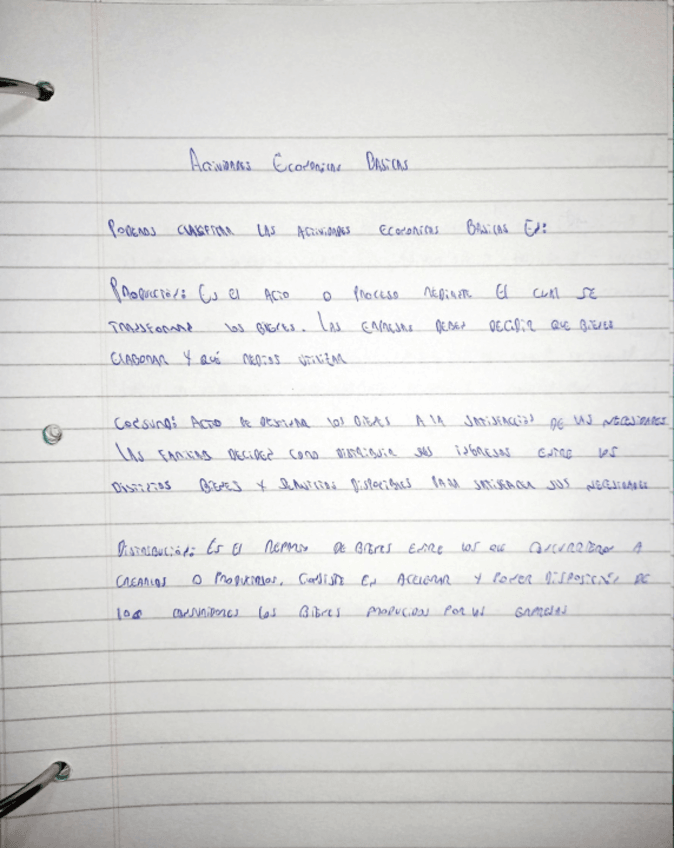 Actividades Economicas Basicas
Podemos clasificar las actividades economicas basicas en:
Producción: Es el acto o proceso mediante el cual se
transforman los bienes. Las empresas deben decidir que bienes
elaborar y qué medios utilizar
Consumo: Acto de destinar los bienes a la satisfacción de las necesidades
Las familias deciden como distribuir sus ingresos entre los
distintos bienes y servicios disponibles para satisfacer sus necesidades
Distribución: Es el reparto de bienes entre los que concurrieron a
crearlos o producirlos. Consiste en acelerar y poner disposición de
los consumidores los bienes producidos por las empresas